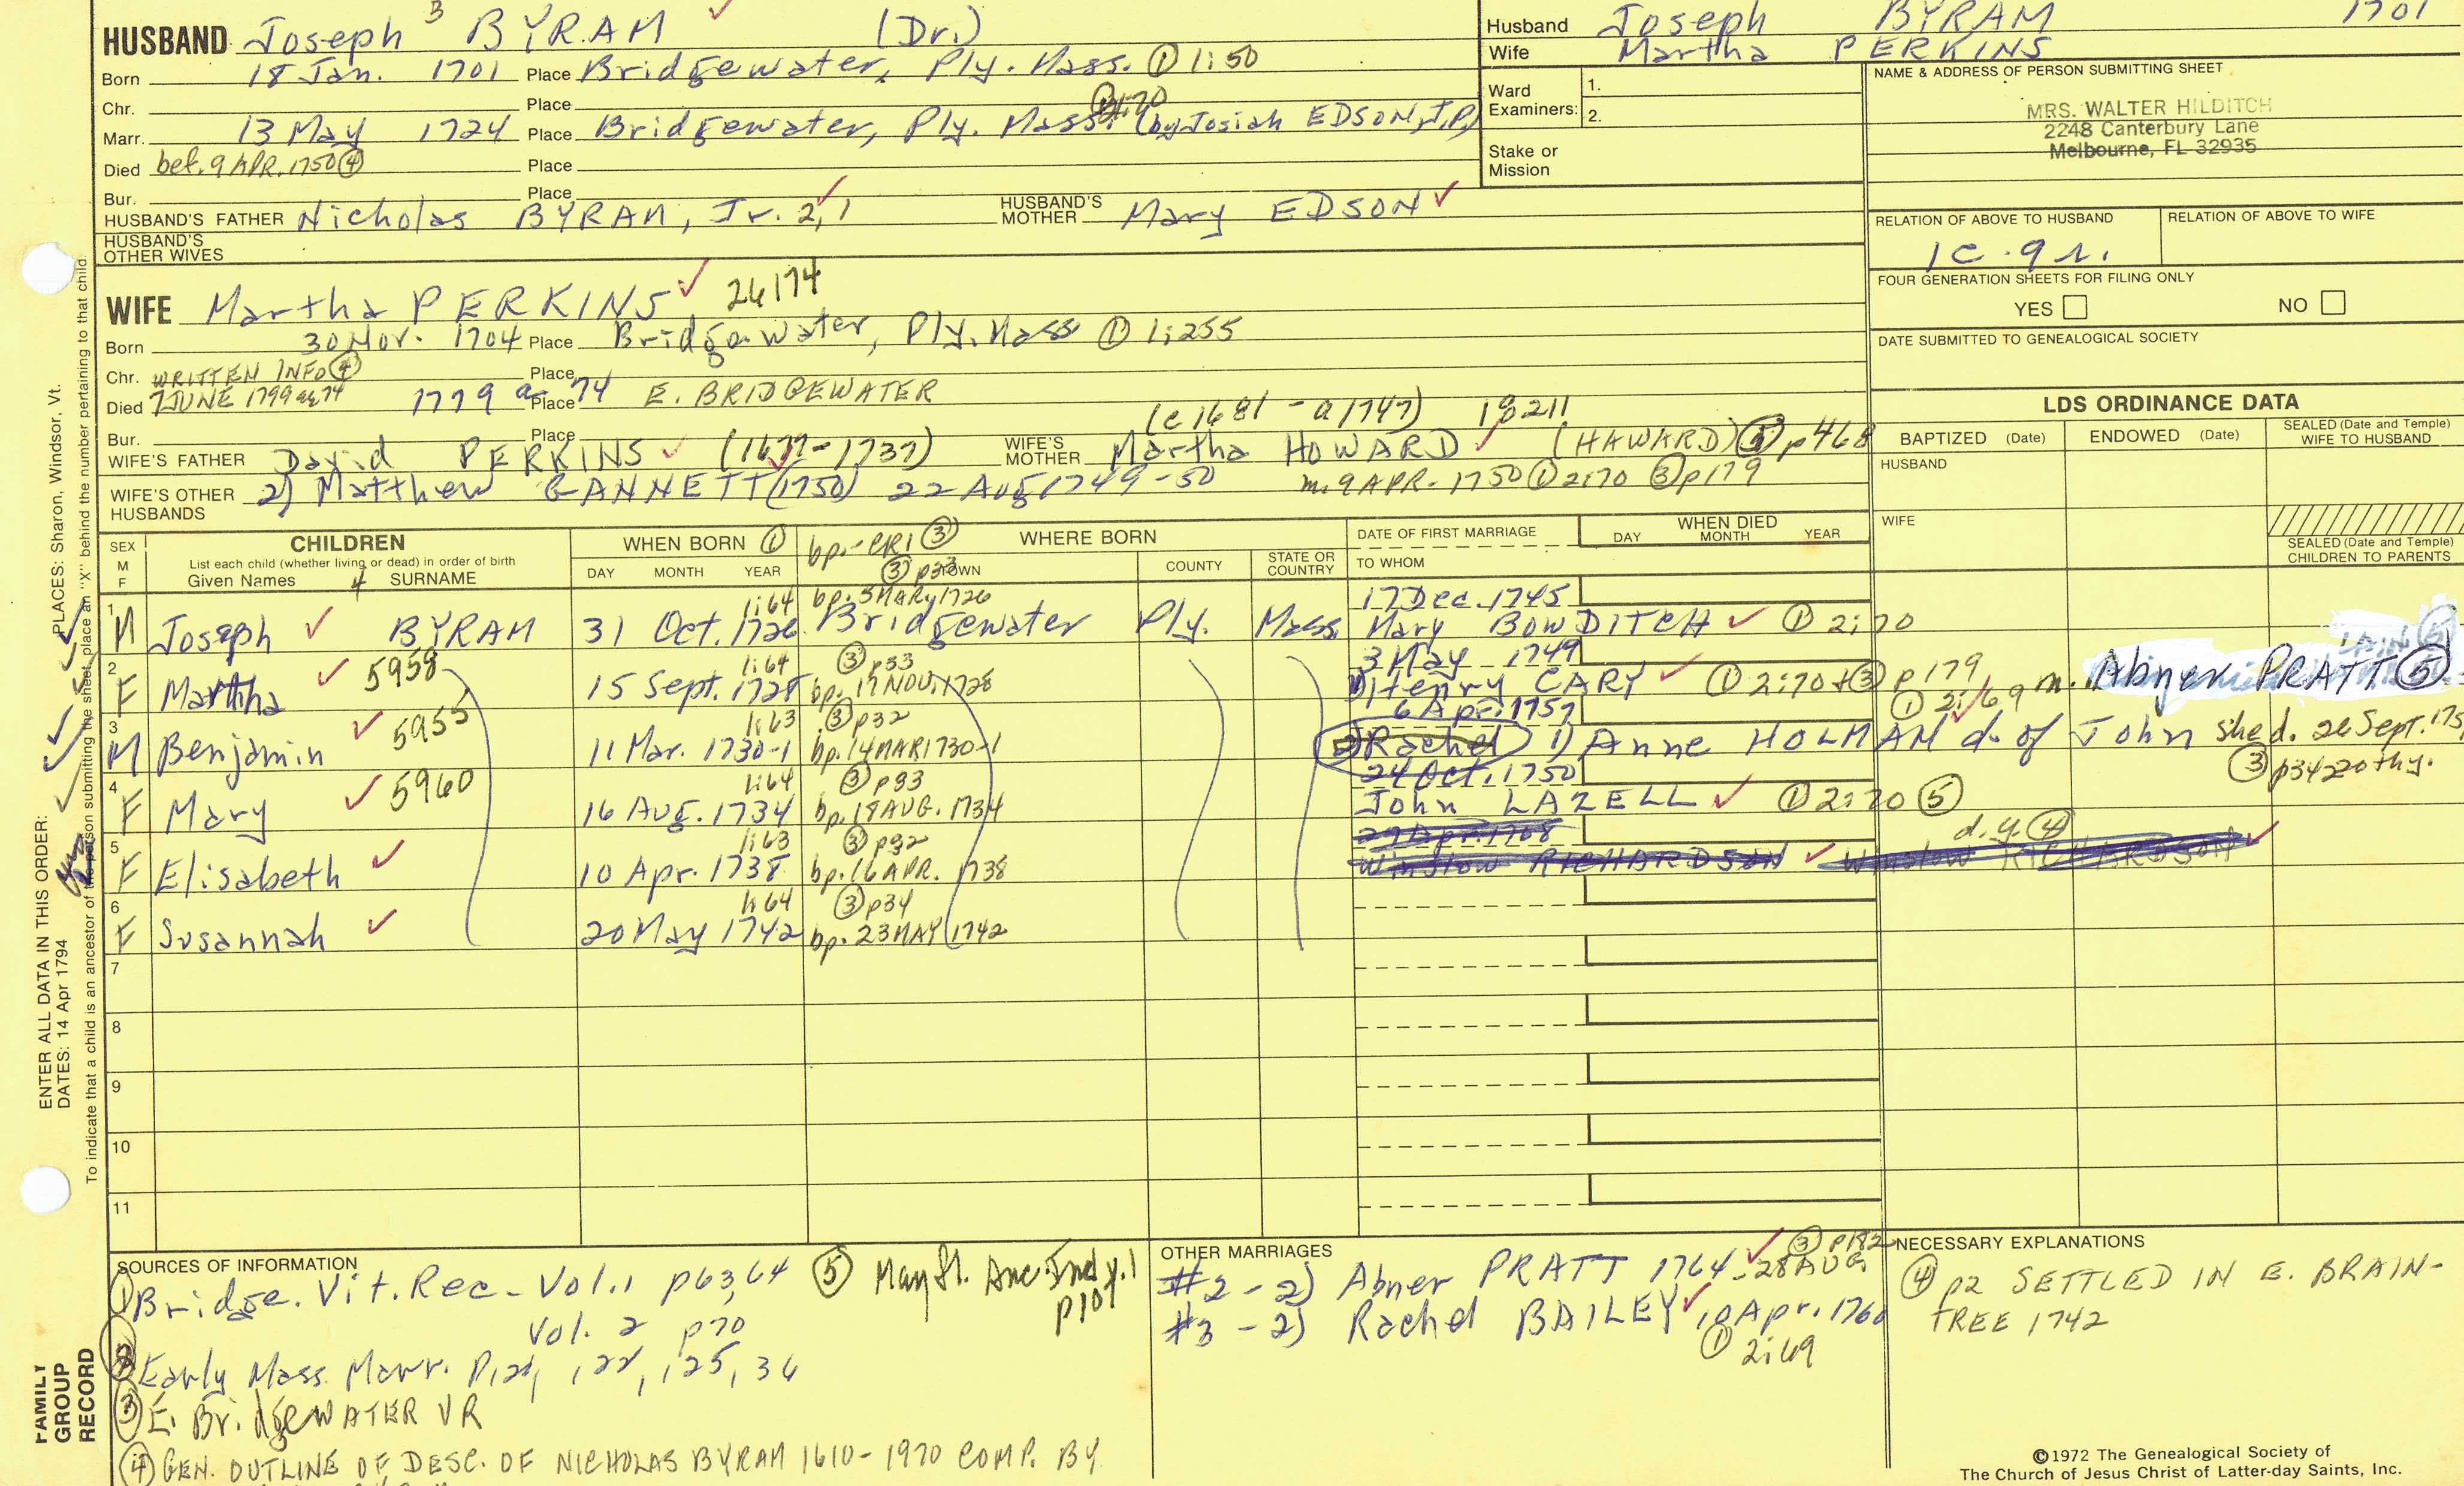 HUSBAND Joseph 3 BYRAM (Dr.)
Born 18 Jan. 1701 Place Bridgewater, Ply. Mass. ① 1:50
Chr. Place
Marr. 13 May 1724 Place Bridgewater, Ply. Mass. (by Josiah EDSON, J.P.)
Died bef. 9 APR. 1750 ④ Place
Bur. Place
HUSBAND'S FATHER Nicholas BYRAM, Jr. 2,1 HUSBAND'S MOTHER Mary EDSON
HUSBAND'S OTHER WIVES
Husband Joseph BYRAM 1701
Wife Martha PERKINS
Ward Examiners: 1.
2.
Stake or Mission
NAME & ADDRESS OF PERSON SUBMITTING SHEET
MRS. WALTER HILDITCH
2248 Canterbury Lane
Melbourne, FL 32935
RELATION OF ABOVE TO HUSBAND RELATION OF ABOVE TO WIFE
1c. 9r.
FOUR GENERATION SHEETS FOR FILING ONLY
YES NO
DATE SUBMITTED TO GENEALOGICAL SOCIETY
WIFE Martha PERKINS 26174
Born 30 Nov. 1704 Place Bridgewater, Ply. Mass ① 1:255
Chr. WRITTEN INFO ④ Place
Died 7 JUNE 1799 ag 74 1779 a 74 Place E. BRIDGEWATER
Bur. Place
(c 1681 - a 1747) 18211
WIFE'S FATHER David PERKINS (1677-1737) WIFE'S MOTHER Martha HOWARD (HAWARD) p468
WIFE'S OTHER HUSBANDS 2) Matthew GANNETT (1750) 22 Aug 1749-50 m. 9 APR. 1750 ① 2:70 ③ p179
LDS ORDINANCE DATA
BAPTIZED (Date) ENDOWED (Date) SEALED (Date and Temple) WIFE TO HUSBAND
HUSBAND
WIFE
SEALED (Date and Temple) CHILDREN TO PARENTS
SEX M F
CHILDREN
List each child (whether living or dead) in order of birth
Given Names 4 SURNAME
WHEN BORN ①
DAY MONTH YEAR
bp.-CR1 ③ WHERE BORN
③ p33 TOWN COUNTY STATE OR COUNTRY
DATE OF FIRST MARRIAGE
TO WHOM
WHEN DIED
DAY MONTH YEAR
1:64 bp. 5 MARy 1726 17 Dec. 1745
1 M Joseph BYRAM 31 Oct. 1726 Bridgewater Ply. Mass. Mary BOWDITCH ① 2:70
1:64 ③ p33 3 May 1749
2 F Martha 5958 15 Sept. 1728 bp. 17 NOV. 1728 1) Henry CARY ① 2:70 + ③ p179 m. Abner PRATT ⑤
1:63 ③ p32 6 Apr. 1757 ① 2:69
3 M Benjamin 5955 11 Mar. 1730-1 bp. 14 MAR 1730-1 2) Rachel 1) Anne HOLMAN d. of John she d. 26 Sept.
③ p342
1:64 ③ p33 24 Oct. 1750
4 F Mary 5960 16 Aug. 1734 bp. 18 AUG. 1734 John LAZELL ① 2:70 ⑤
1:63 ③ p32 29 Apr. 1768 d.y. ④
5 F Elisabeth 10 Apr. 1738 bp. 16 APR. 1738 Winslow RICHARDSON Winslow RICHARDSON
1:64 ③ p34
6 F Susannah 20 May 1742 bp. 23 MAY 1742
7
8
9
10
11
SOURCES OF INFORMATION
① Bridge. Vit. Rec. Vol. 1 p63,64
Vol. 2 p70
② Early Mass. Marr. P121, 122, 125, 36
③ E. BridgeWATER VR
④ GEN. OUTLINE OF DESC. OF NICHOLAS BYRAM 1610-1970 COMP. BY
⑤ Mayfl. Anc. Ind v.1
p107
OTHER MARRIAGES
#2 - 2) Abner PRATT 1764 - 28 AUG ③ p182
#3 - 2) Rachel BAILEY 10 Apr. 1760
① 2:69
NECESSARY EXPLANATIONS
④ p2 SETTLED IN E. BRAIN-
TREE 1742
©1972 The Genealogical Society of
The Church of Jesus Christ of Latter-day Saints, Inc.
ENTER ALL DATA IN THIS ORDER:
PLACES: Sharon, Windsor, Vt.
DATES: 14 Apr 1794
To indicate that a child is an ancestor of the person submitting the sheet, place an "X" behind the number pertaining to that child.
FAMILY
GROUP
RECORD